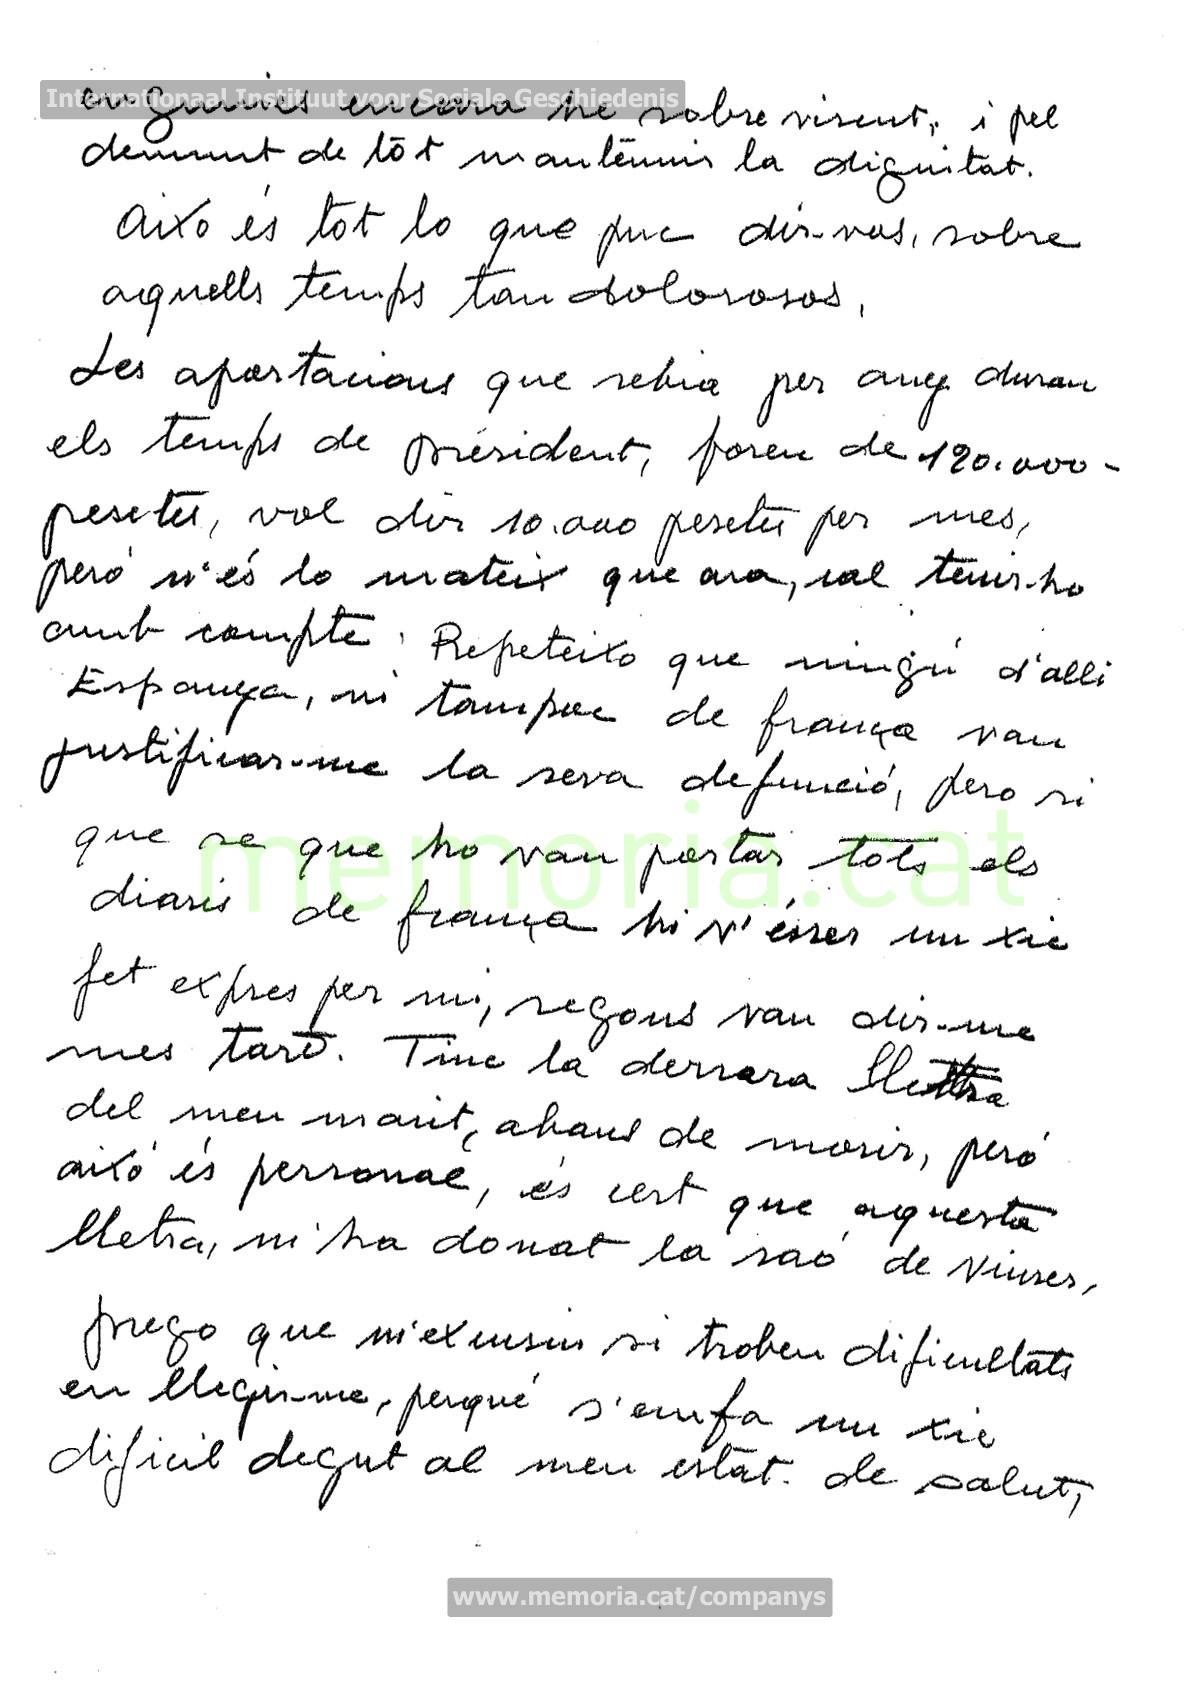 Internationaal Instituut voor Sociale Geschiedenis
encara he sobrevisent, i pel
demunt de tōt mantēnnir la dignitat.
Aixo és tot lo que puc dir-vos, sobre
aquells temps tan dolorosos,
Les aportacions que rebia per any duran
els temps de président, foren de 120.000-
pesetes, vol dir 10.000 pesetes per mes,
peró n'és lo mateix que ara, cal tenir-ho
amb compte. Repeteixo que ningú d'alli
Espanya, ni tampoc de frança van
justificar-me la seva defunció, pero si
que se que ho van portar tots els
diaris de frança hi v'ésser un xic
fet expres per mi, segons van dir-me
mes tard. Tinc la derrara lletra
del meu marit, abans de morir, peró
aixó és personal, és cert que aquesta
lletra, m'ha donat la raó de viurer,
prego que m'excusin si troben dificultats
en llegir-me, perqué s'emfa un xic
dificil degut al meu estat. de salut,
memoria.cat
www.memoria.cat/companys